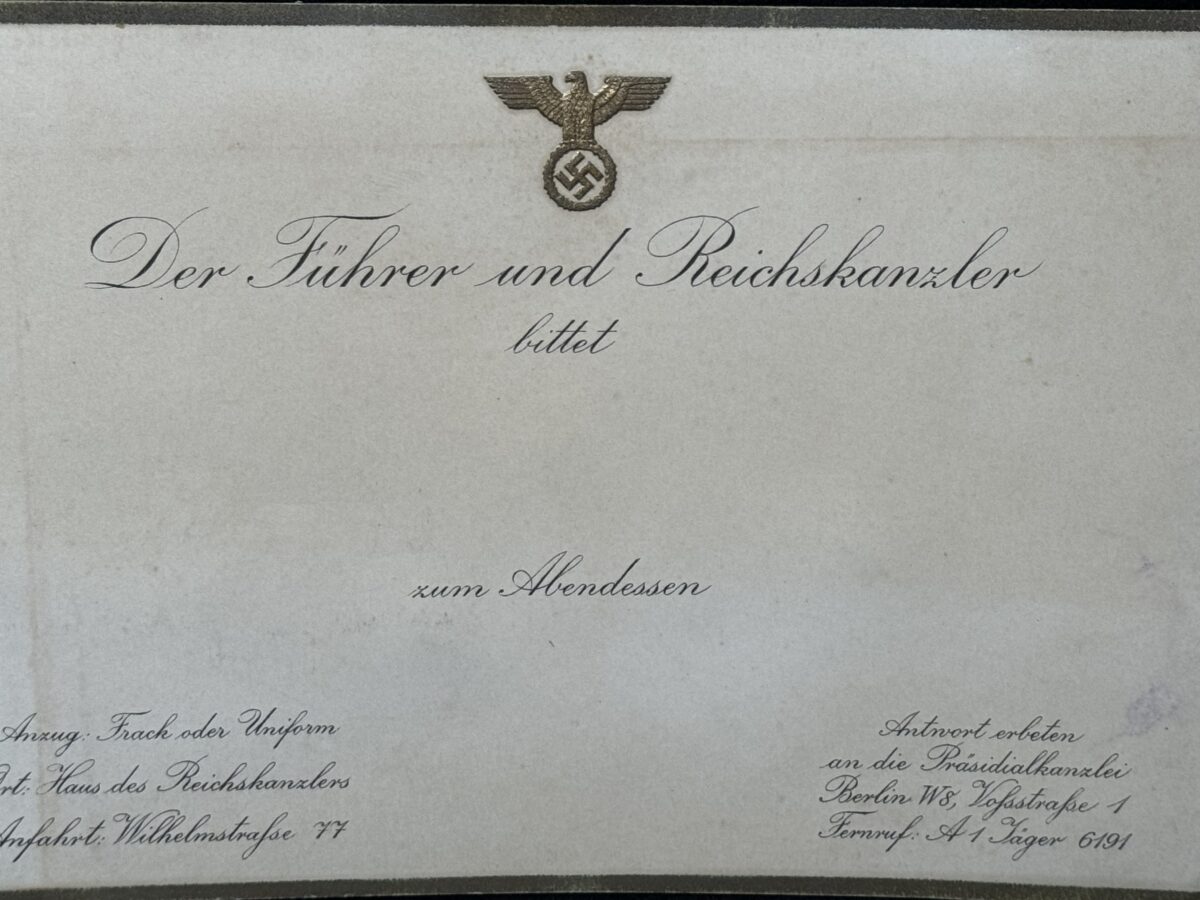 Der Führer und Reichskanzler
bittet
zum Abendessen
Anzug: Frack oder Uniform
Haus des Reichskanzlers
Anfahrt: Wilhelmstraße 77
Antwort erbeten
an die Präsidialkanzlei
Berlin W8, Voßstraße 1
Fernruf: A 1 Jäger 6191